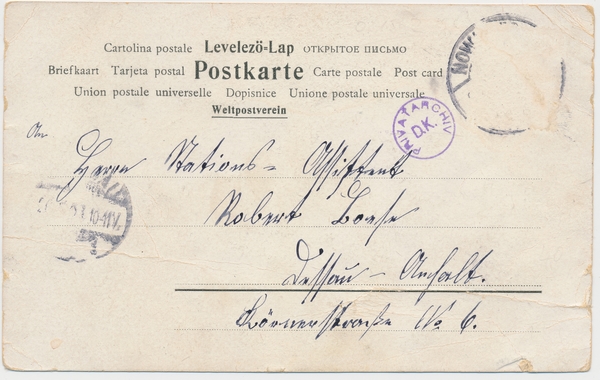 Cartolina postale Levelezö-Lap ОТКРЫТОЕ ПИСЬМО
Briefkaart Tarjeta postal Postkarte Carte postale Post card
Union postale universelle Dopisnice Unione postale universale
Weltpostverein
PRIVATARCHIV
D.K.
An
Herrn Stations-Assistent
Robert Boese
Dessau-Anhalt.
Körnerstraße No 6.
10-11V.